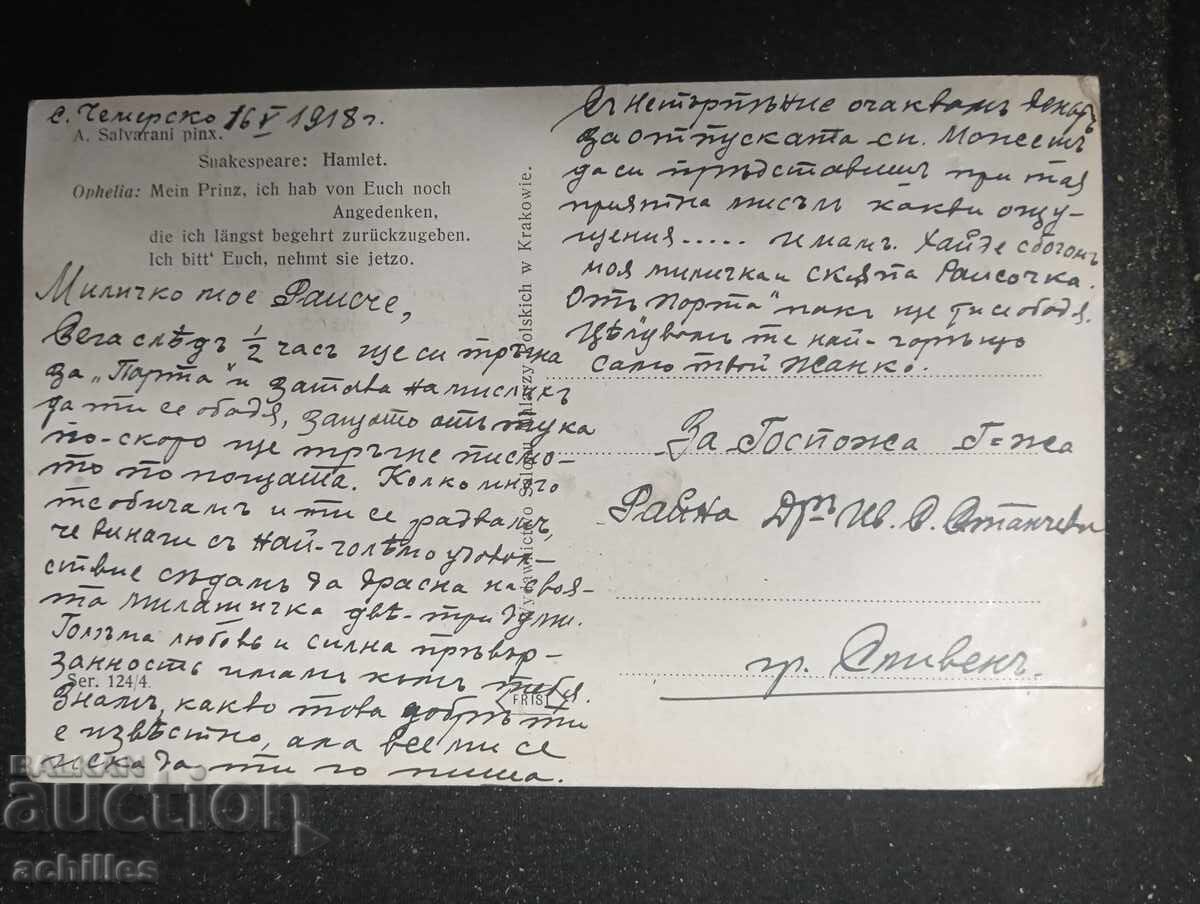 с. Чемерско 16 V 1918 г.
A. Salvarani pinx.
Shakespeare: Hamlet.
Ophelia: Mein Prinz, ich hab von Euch noch
Angedenken,
die ich längst begehrt zurückzugeben.
Ich bitt' Euch, nehmt sie jetzo.
Миличко мое Раисче,
Сега слѣдъ 1/2 часъ ще си тръгна
за „Порта" и затова намислихъ
да ти се обадя, защото отъ тука
по-скоро ще тръгне писмо-
то по пощата. Колко много
те обичамъ и ти се радвамъ,
че винаги съ най-голѣмо удовол-
ствие сѣдамъ да драсна на своя-
та милашичка двѣ-три думи.
Голѣма любовь и силна привър-
занность имамъ къмъ тебя.
Знамъ, какво това добрѣ ти
е извѣстно, ала все ми се
иска да ти го пиша.
Ser. 124/4.
Wydawnictwo Salonu Malarzy Polskich w Krakowie.
FRIST
Съ нетърпѣние очаквамъ
за отпуската си. Можешъ
да си прѣдставишъ при тая
приятна мисъль какви ощу-
щения..... имамъ. Хайде сбогомъ
моя миличка и скѫпа Раисочка.
Отъ „Порта" пакъ ще ти се обадя.
Цѣлувамъ те най-горѣщо
само твой Жанко.
За Госпожа Г-жа
Райна Д-ръ Ив. С. Станчева
гр. Сливенъ.
BALKAN
auction
achilles